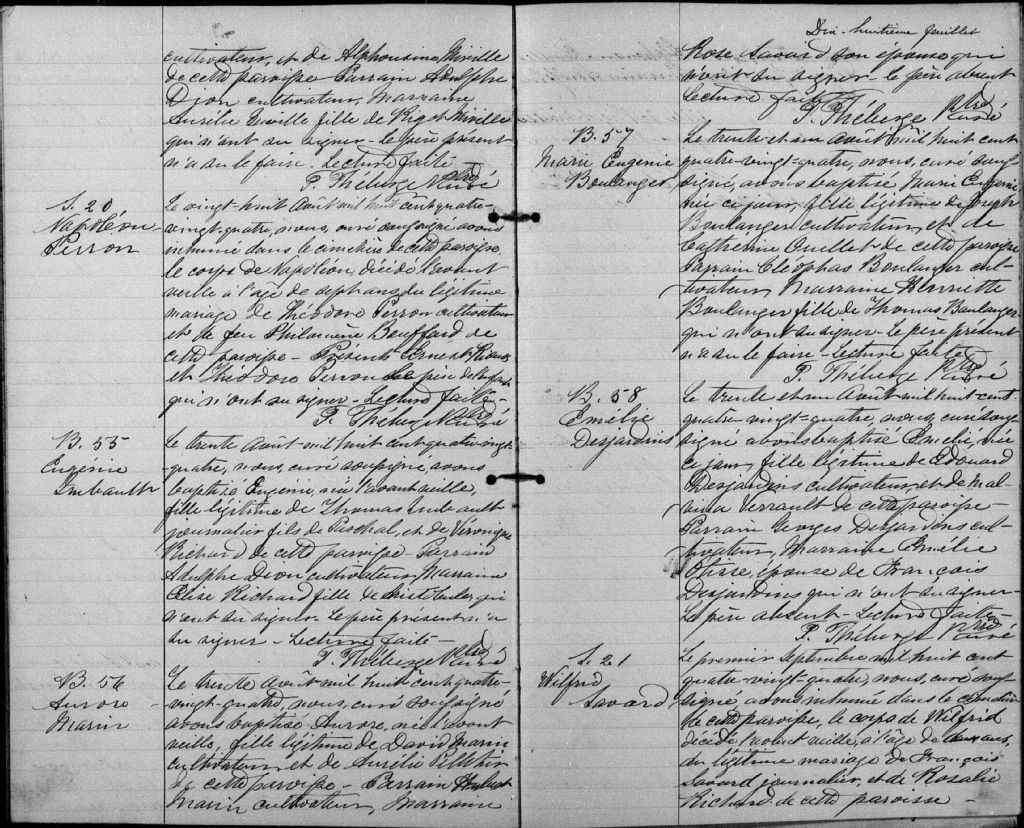 cultivateur, et de Alphonsine Miville
de cette paroisse Parrain Adolphe
Dion cultivateur, Marraine
Aurélie Miville fille de Miville
qui n'ont su signer - Le père présent
n'a su le faire - Lecture faite -
P. Théberge Ptre Curé
S. 20
Napoléon
Perron
Le vingt huit Août mil huit cent quatre-
vingt-quatre, nous, curé soussigné avons
inhumé dans le cimetière de cette paroisse,
le corps de Napoléon, décédé l'avant
veille à l'âge de sept ans, du légitime
mariage de Théodore Perron cultivateur
et de feu Philomène Bouffard de
cette paroisse - Présents Ernest
et Théodore Perron père de l'enfant
qui n'ont su signer - Lecture faite -
P. Théberge Ptre Curé
B. 55
Eugénie
Imbault
Le trente Août mil huit cent quatre-vingt-
quatre, nous, curé soussigné, avons
baptisé Eugénie, née l'avant veille,
fille légitime de Thomas Imbault
journalier fils de Paschal, et de Véronique
Richard de cette paroisse Parrain
Adolphe Dion cultivateur, Marraine
Elise Richard fille de qui
n'ont su signer. Le père présent n'a
su signer - Lecture faite -
P. Théberge Ptre Curé
B. 56
Aurore
Marin
Le trente août mil huit cent quatre-
vingt-quatre, nous, curé soussigné
avons baptisé Aurore, née l'avant
veille, fille légitime de David Marin
cultivateur, et de Aurélie Pelletier
de cette paroisse - Parrain Hubert
Marin cultivateur, Marraine
Dix-huitième feuillet
Rose Savard son épouse qui
n'ont su signer - le père absent
Lecture faite
P. Théberge Ptre Curé
B. 57
Marie Eugenie
Boulanger
Le trente et un août mil huit cent
quatre-vingt-quatre, nous, curé sous-
signé, avons baptisé Marie Eugenie
née ce jour, fille légitime de Joseph
Boulanger cultivateur, et de
Catherine Ouellet de cette paroisse
Parrain Cléophas Boulanger cul-
tivateur, Marraine Henriette
Boulanger fille de Thomas Boulanger
qui n'ont su signer - Le père présent
n'a su le faire - Lecture faite
P. Théberge Ptre Curé
B. 58
Emélie
Desjardins
Le trente et un Août mil huit cent
quatre-vingt-quatre, nous, curé sous-
signé avons baptisé Emélie, née
ce jour, fille légitime de Edouard
Desjardins cultivateur, et de Mal-
vina Verrault de cette paroisse -
Parrain Georges Desjardins cul-
tivateur, Marraine Emélie
épouse de François
Desjardins qui n'ont su signer -
Le père absent - Lecture faite
P. Théberge Ptre Curé
S. 21
Wilfrid
Savard
Le premier Septembre mil huit cent
quatre-vingt-quatre, nous, curé sous-
signé, avons inhumé dans le cimetière
de cette paroisse, le corps de Wilfrid
décédé l'avant veille, à l'âge de deux ans,
du légitime mariage de François
Savard journalier, et de Rosalie
Richard de cette paroisse -